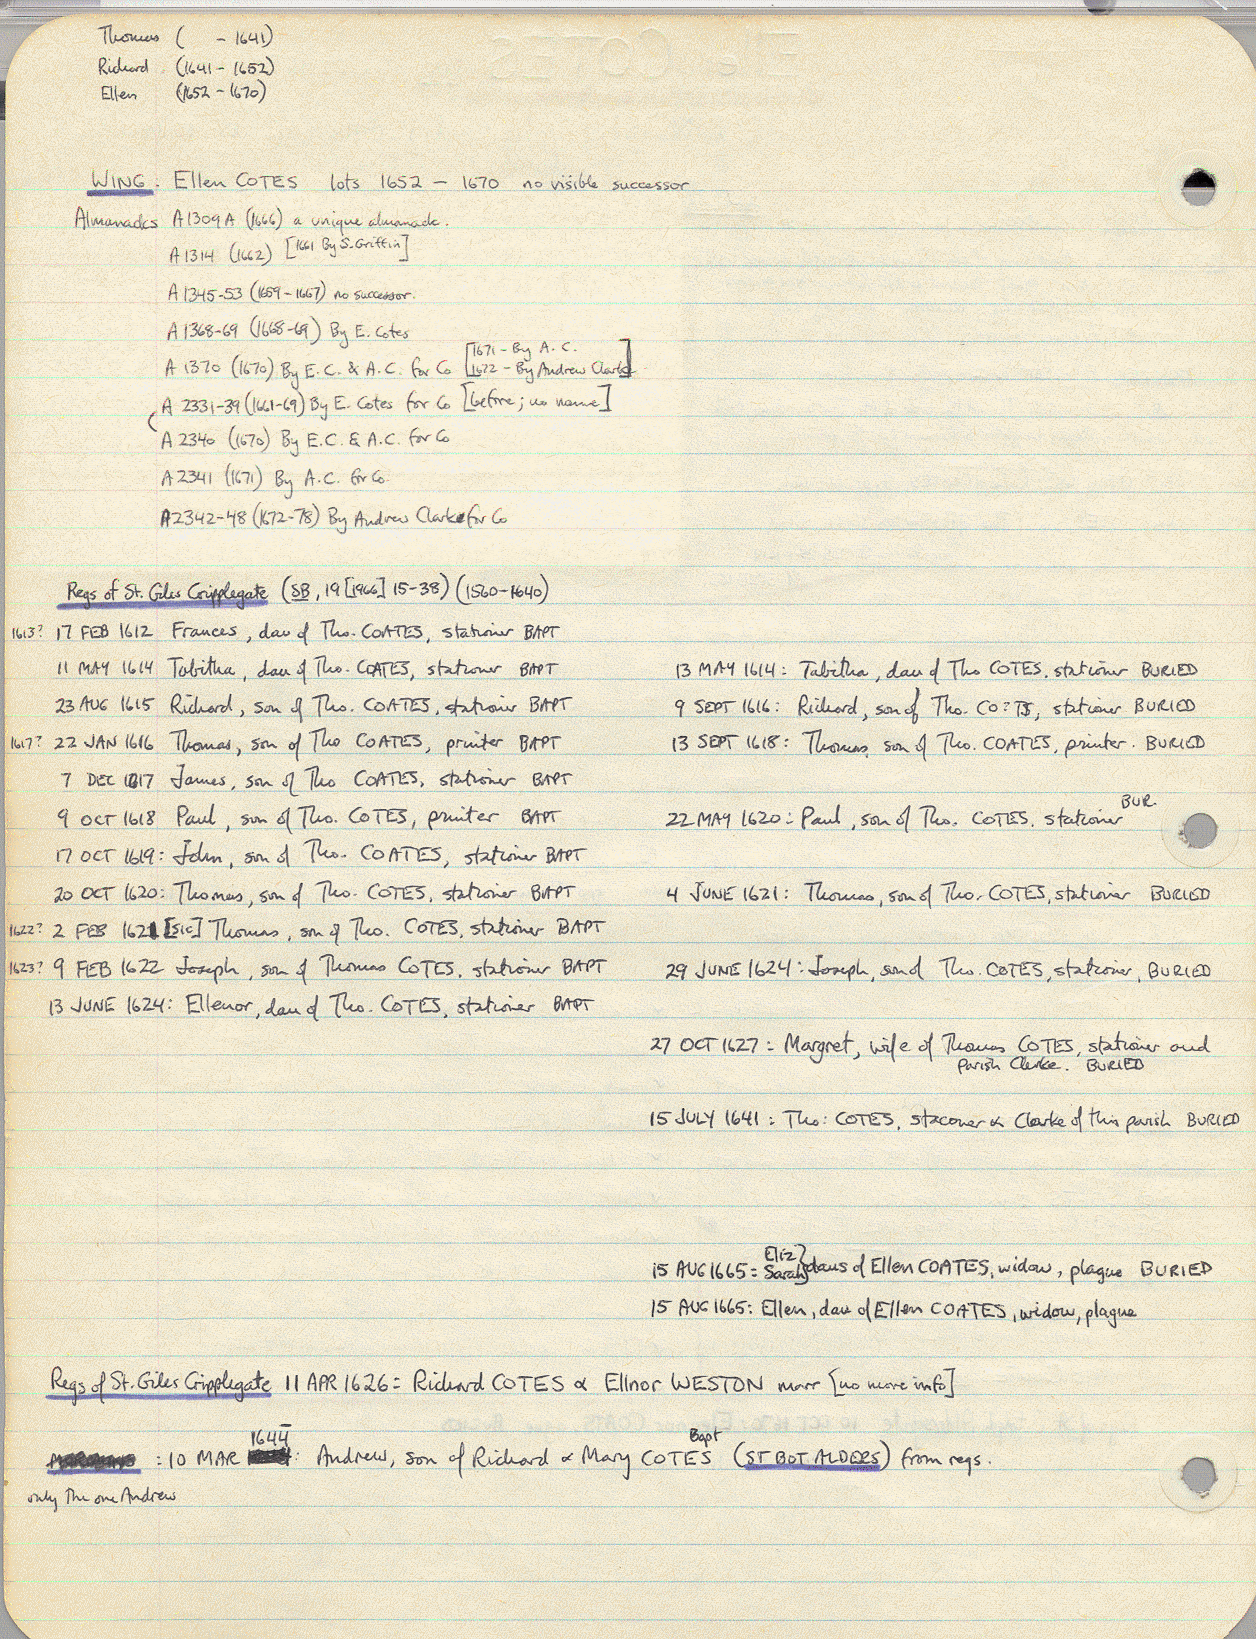 Thomas ( - 1641)
Richard (1641 - 1652)
Ellen (1652 - 1670)
WING. Ellen COTES lots 1652 - 1670 no visible successor
Almanacks A1309A (1666) a unique almanack.
A1314 (1662) [1661 By S. Griffin]
A1345-53 (1659-1667) no successor.
A1368-69 (1668-69) By E. Cotes
A1370 (1670) By E.C. & A.C. for Co [1671 - By A.C.
1672 - By Andrew Clarke]
A 2331-39 (1661-69) By E. Cotes for Co [before; no name]
A2340 (1670) By E.C. & A.C. for Co
A2341 (1671) By A.C. for Co.
A2342-48 (1672-78) By Andrew Clarke for Co
Regs of St. Giles Cripplegate (SB, 19 [1966] 15-38) (1560-1640)
1613? 17 FEB 1612 Frances, dau of Tho. COATES, stationer BAPT
11 MAY 1614 Tabitha, dau of Tho. COATES, stationer BAPT 13 MAY 1614: Tabitha, dau of Tho COTES, stationer BURIED
23 AUG 1615 Richard, son of Tho. COATES, stationer BAPT 9 SEPT 1616: Richard, son of Tho. CO?TS, stationer BURIED
1617? 22 JAN 1616 Thomas, son of Tho COATES, printer BAPT 13 SEPT 1618: Thomas, son of Tho. COATES, printer. BURIED
7 DEC 1617 James, son of Tho COATES, stationer BAPT
9 OCT 1618 Paul, son of Tho. COTES, printer BAPT 22 MAY 1620: Paul, son of Tho. COTES, stationer BUR.
17 OCT 1619: John, son of Tho. COATES, stationer BAPT
20 OCT 1620: Thomas, son of Tho. COTES, stationer BAPT 4 JUNE 1621: Thomas, son of Tho. COTES, stationer BURIED
1622? 2 FEB 1621 [SIC] Thomas, son of Tho. COTES, stationer BAPT
1623? 9 FEB 1622 Joseph, son of Thomas COTES, stationer BAPT 29 JUNE 1624: Joseph, son of Tho. COTES, stationer, BURIED
13 JUNE 1624: Ellenor, dau of Tho. COTES, stationer BAPT
27 OCT 1627: Margret, wife of Thomas COTES, stationer and
parish Clerke. BURIED
15 JULY 1641: Tho: COTES, staconer & Clarke of this parish BURIED
15 AUG 1665: Eliz } Sarah } daus of Ellen COATES, widow, plague BURIED
15 AUG 1665: Ellen, dau of Ellen COATES, widow, plague
Regs of St. Giles Cripplegate 11 APR 1626: Richard COTES & Ellnor WESTON marr [no more info]
: 10 MAR 1644: Andrew, son of Richard & Mary COTES Bapt (ST BOT ALDERS) from regs.
only the one Andrew